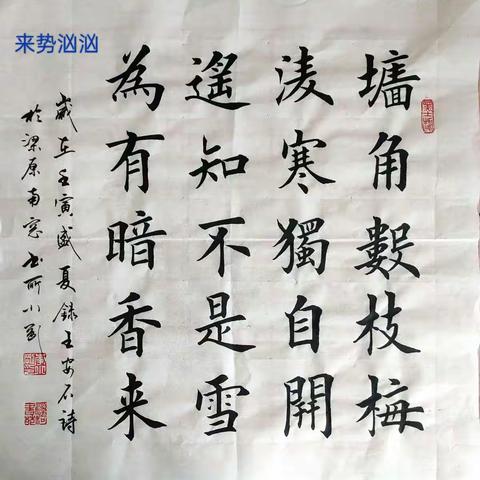 来势汹汹
墙角數枝梅
淩寒獨自開
遙知不是雪
為有暗香来
歲在壬寅盛夏錄王安石詩
於梁原南窓